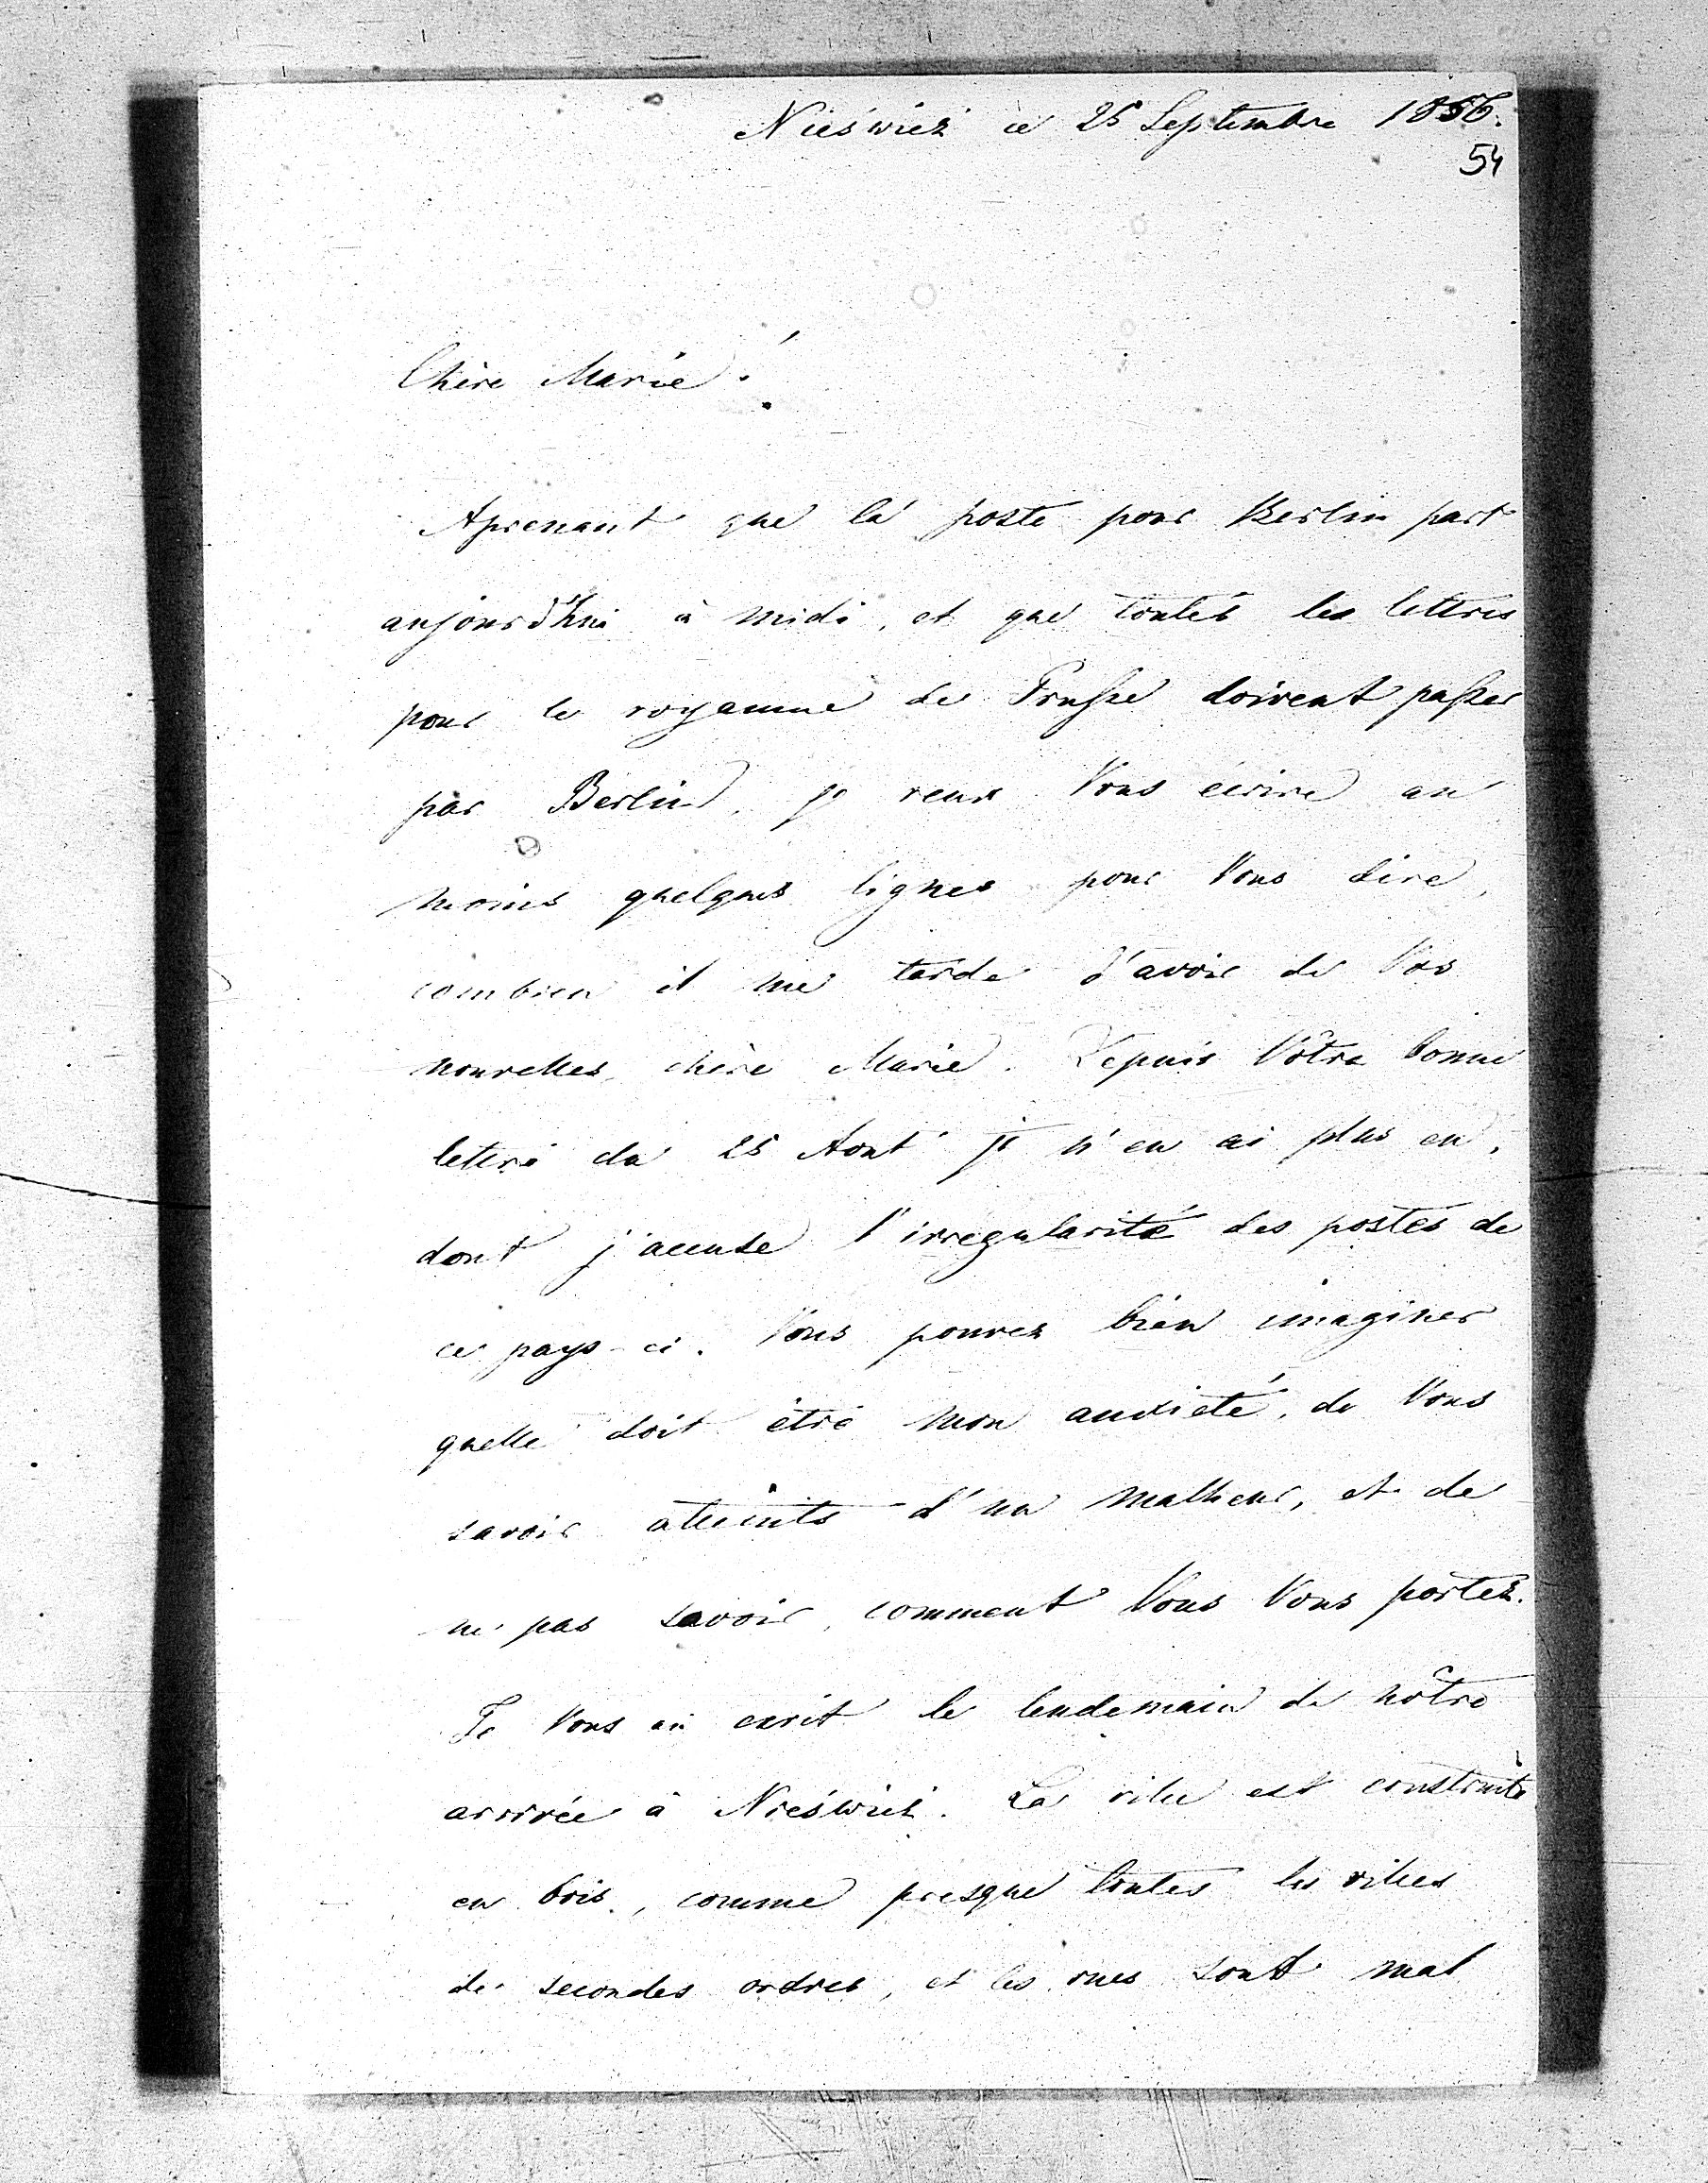 Nieświez ce 25 Septembre 1856.
54
Chère Marie!
Aprenant que la poste pour Berlin part
aujourd'hui à midi, et que toutes les lettres
pour le royaume de Prusse doivent passer
par Berlin, je veux Vous écrire au
moins quelques lignes pour Vous dire,
combien il me tarde d'avoir de Vos
nouvelles, chère Marie. Depuis Vôtre bonne
lettre du 25 Aout je n'en ai plus eu,
dont j'accuse l'irregularité des postes de
ce pays-ci. Vous pouvez bien imaginer
quelle doit être mon anxieté, de Vous
savoir atteints d'un malheur, et de
ne pas savoir, comment Vous Vous portez.
Je Vous ai ecrit le lendemain de nôtre
arrivée à Nieświez. La ville est construite
en bois, comme presque toutes les villes
de secondes ordres, et les rues sont mal